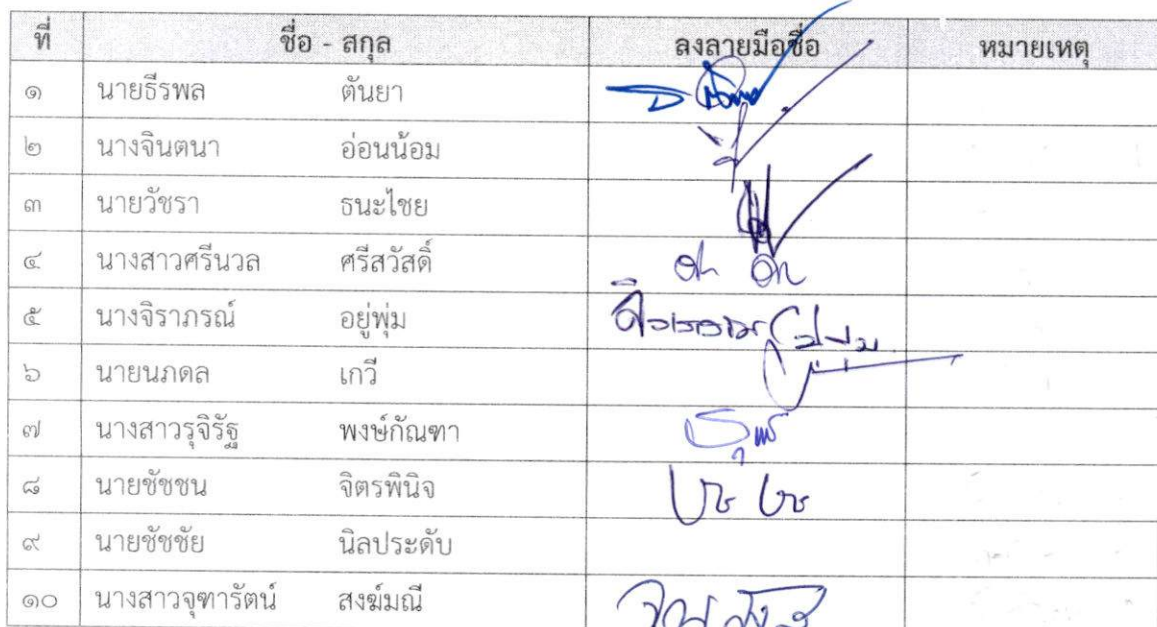 ที่ ชื่อ - สกุล ลงลายมือชื่อ หมายเหตุ
๑ นายธีรพล ตันยา
๒ นางจินตนา อ่อนน้อม
๓ นายวัชรา ธนะไชย
๔ นางสาวศรีนวล ศรีสวัสดิ์
๕ นางจิราภรณ์ อยู่พุ่ม
๖ นายนภดล เกวี
๗ นางสาวรุจิรัฐ พงษ์กัณฑา
๘ นายชัชชน จิตรพินิจ
๙ นายชัชชัย นิลประดับ
๑๐ นางสาวจุฑารัตน์ สงฆ์มณี